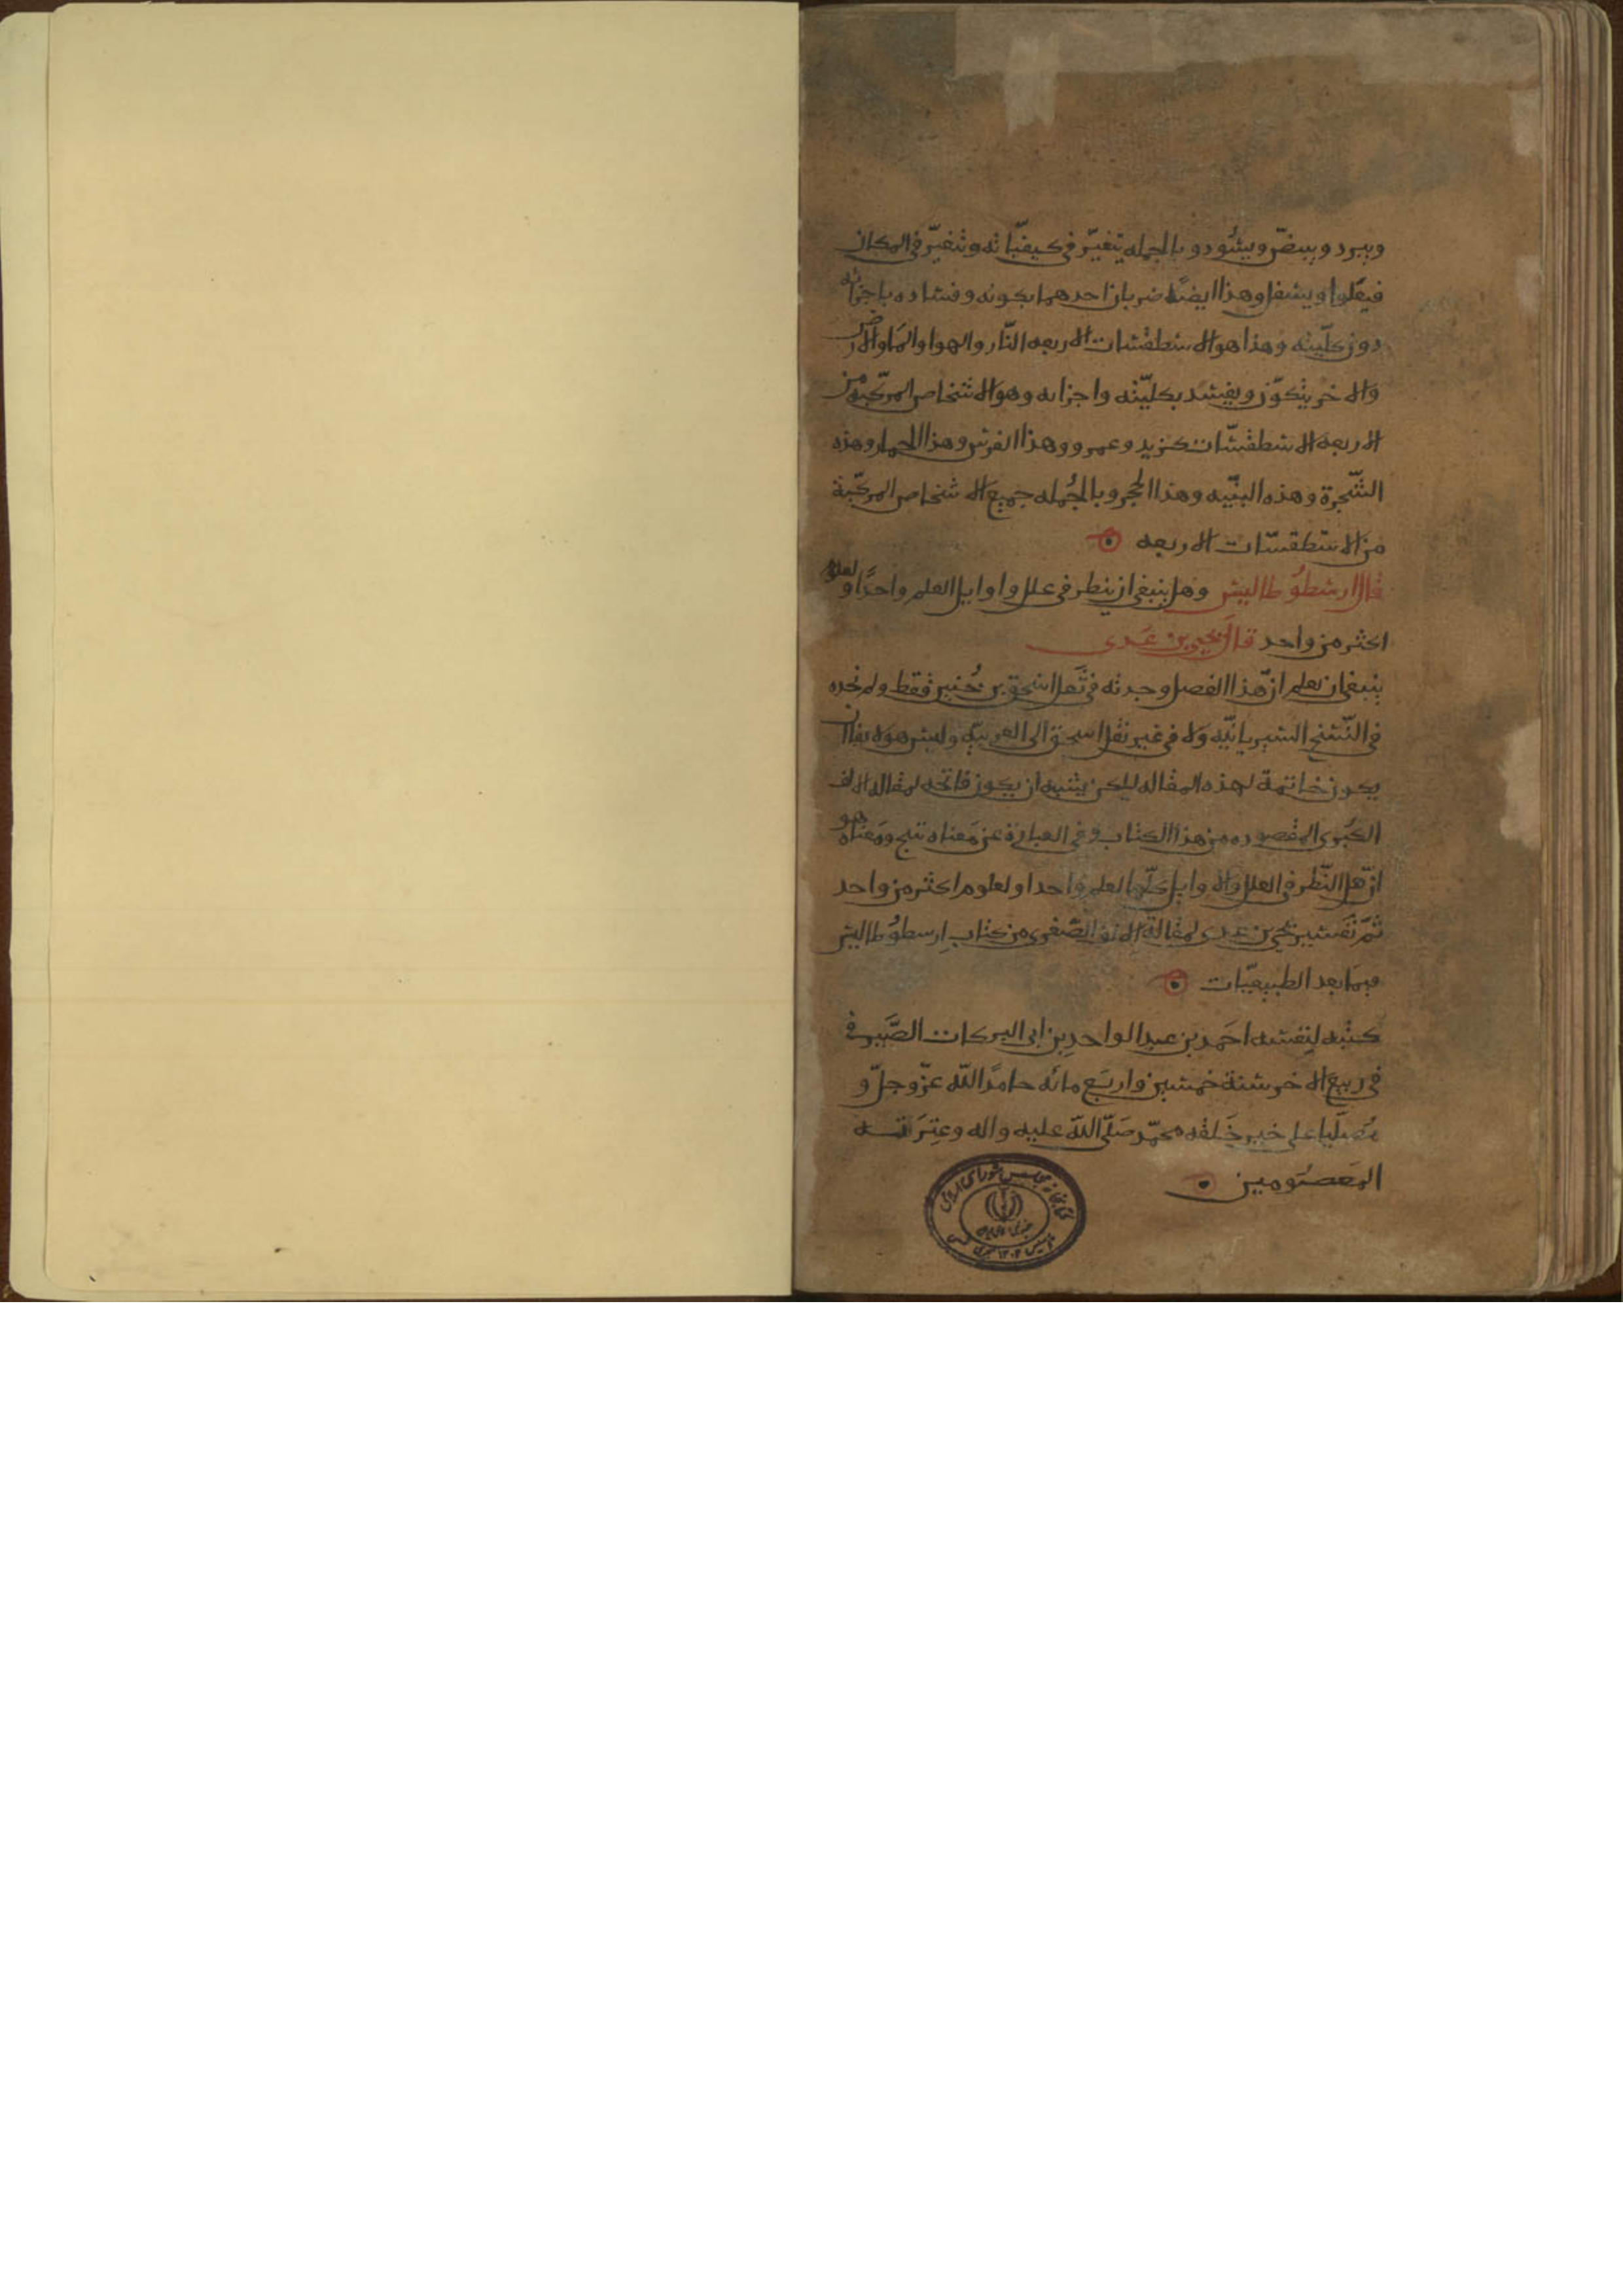 ويبرد ويبيضّ ويسْوَد وبالجمله يتغيّر في كيفيّاته ويتغيّر في المكان
فيعْلوا ويسفل وهذا ايضًا ضربان احدهما يكونه وفساده باجزائه
دون كلّيته وهذا هو الاسطقسات الاربعه النّار والهوا والمَا والارض
والاخر يتكوّن ويفسد بكليّته واجزايه وهو الاشخاص المركّبة من
الاربعه الاسطقسّات كزيد وعمرو وهذا الفرس وهذا الحمار وهذه
الشّجرة وهذه البنْيه وهذا الحجر وبالجُمله جميع الاشخاص المركّبة
من الاسطقسّات الاربعه
قال ارسطوُطاليس وهل ينبغي ان ينظر في علل واوايل العلم واحدًا او لعلوم
اكثر من واحد قال يحيى بن عَدى
ينبغي ان يعلم ان هذا الفصل وجدته في نَقل اسحق بن حُنين فقط ولم نجده
في النّسخ السريانيّه ولا في غير نقل اسحق الى العربيّه وليس هو لا يقا ان
يكون خاتمة لهذه المقاله ليكن يشبه ان يكون فاتحه لمقاله الالف
الكبرى المقصوده من هذا الكتاب وفي العبارَة عن مَعناه تبج ومَعْناه هو
ان هل النّظر في العلل والاوايل كلّها لعلم واحد او لعلوم اكثر من واحد
تمّ تفسير يحيى بن عدى لمقالة الالف الصّغرى من كتاب ارسطوُطاليس
فيمَا بعد الطبيعيّات
كتبه لنِفسه احَمد بن عبد الواحدِ بن ابي البركات الصَّيرفى
في ربيع الاخر سنة خمسين واربَع مائه حامدًا للّه عزّ وجلّ و
مُصَلّيا على خير خَلقه محمّد صَلّى اللّه عليه واله وعِترَته
المَعصُومين
كتابخانه مجلس شورای اسلامی
جمهوری اسلامی ایران
تاسیس ۱۳۰۲ هجری شمسی